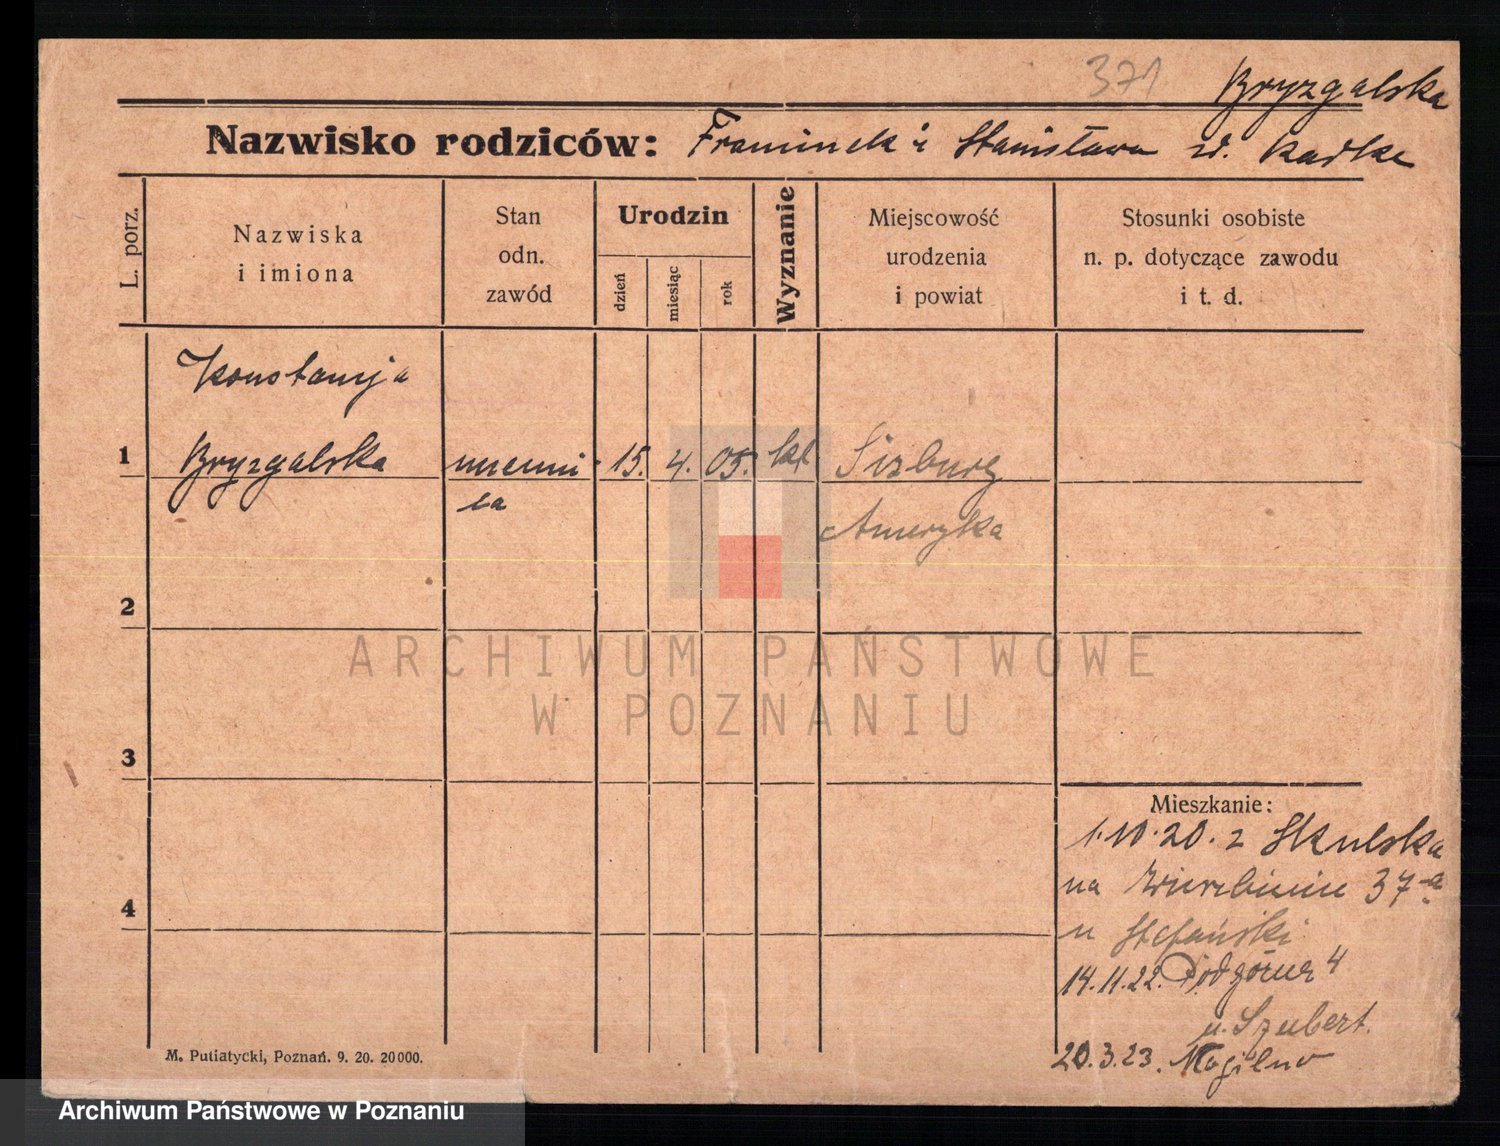 371
Bryzgalska
Nazwisko rodziców: Franciszek i Stanisława zd. Radke
L. porz.
Nazwiska
i imiona
Stan
odn.
zawód
Urodzin
dzień
miesiąc
rok
Wyznanie
Miejscowość
urodzenia
i powiat
Stosunki osobiste
n. p. dotyczące zawodu
i t. d.
Konstancja
1 Bryzgalska uczenni- 15. 4. 05. kł Sizburg
ca Ameryka
2
3
4
Mieszkanie:
1.10.20. z Skulska
na Wierzbięcice 37-a
u Stefański
14.11.22. Podgórna 4
u. Szubert.
20.3.23. Mogilno
M. Putiatycki, Poznań. 9. 20. 20000.
ARCHIWUM PAŃSTWOWE
W POZNANIU
Archiwum Państwowe w Poznaniu